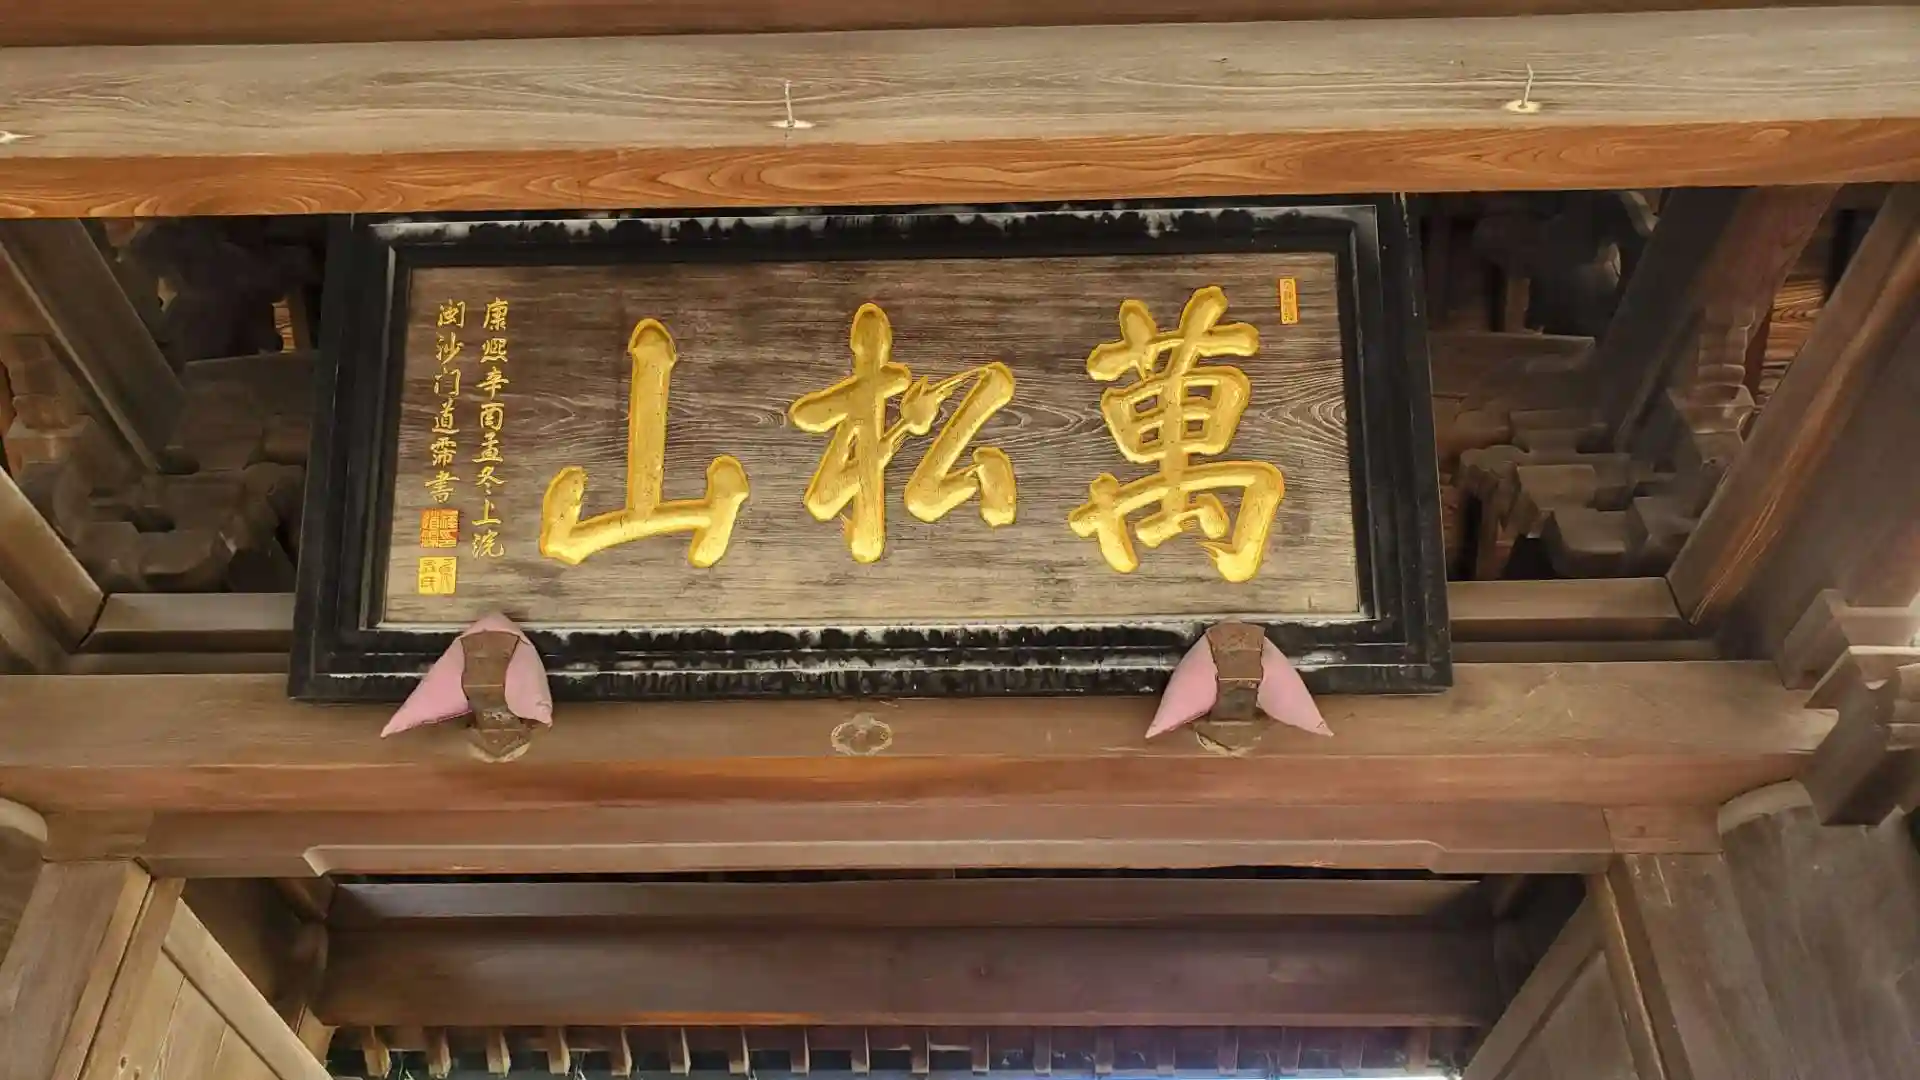 萬松山
康熙辛酉孟冬上浣
闽沙门道霈書